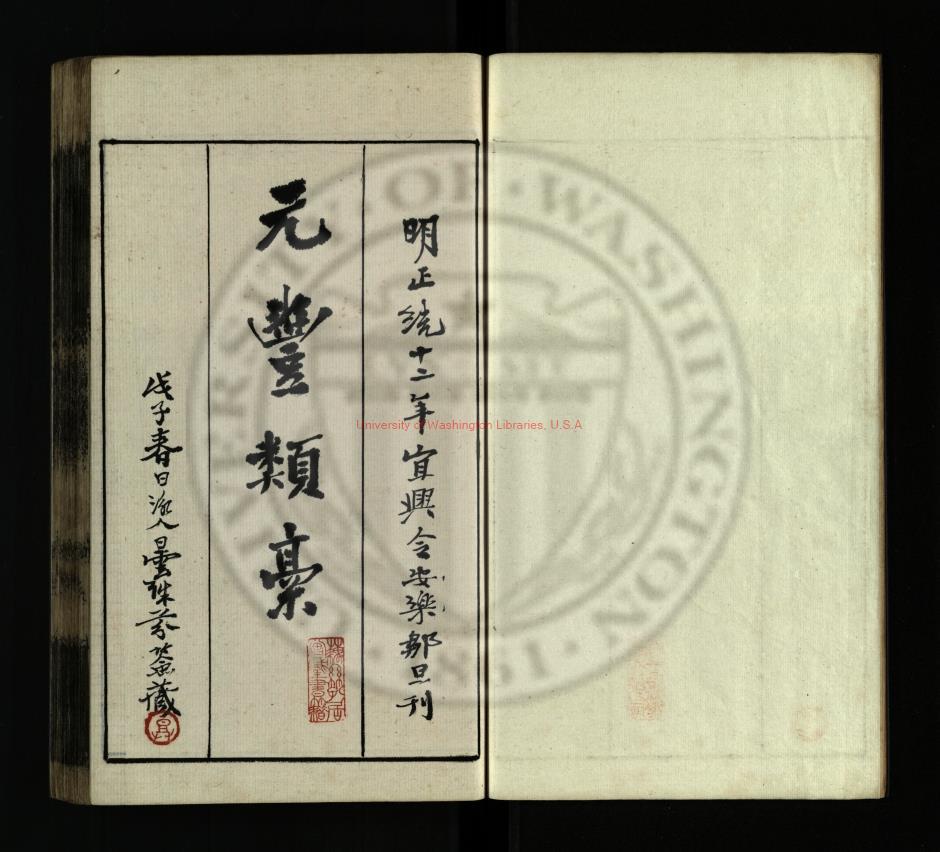 明正統十二年宜興令安樂鄒旦刊
元豐類稾
戊子春日曇芬盦藏
University of Washington Libraries, U.S.A
UNIVERSITY OF WASHINGTON
1861